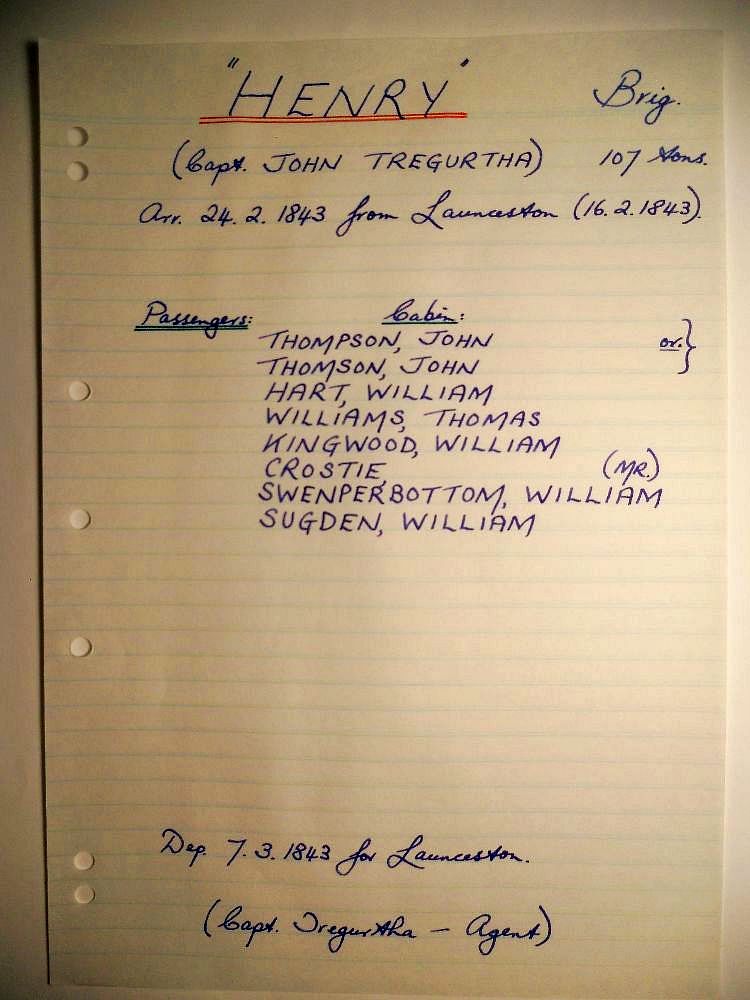 "HENRY" Brig.
(Capt. JOHN TREGURTHA) 107 tons.
Arr. 24. 2. 1843 from Launceston (16. 2. 1843).
Passengers: Cabin:
THOMPSON, JOHN or. }
THOMSON, JOHN
HART, WILLIAM
WILLIAMS, THOMAS
KINGWOOD, WILLIAM
CROSTIE, (MR.)
SWENPERBOTTOM, WILLIAM
SUGDEN, WILLIAM
Dep. 7. 3. 1843 for Launceston.
(Capt. Tregurtha - Agent)